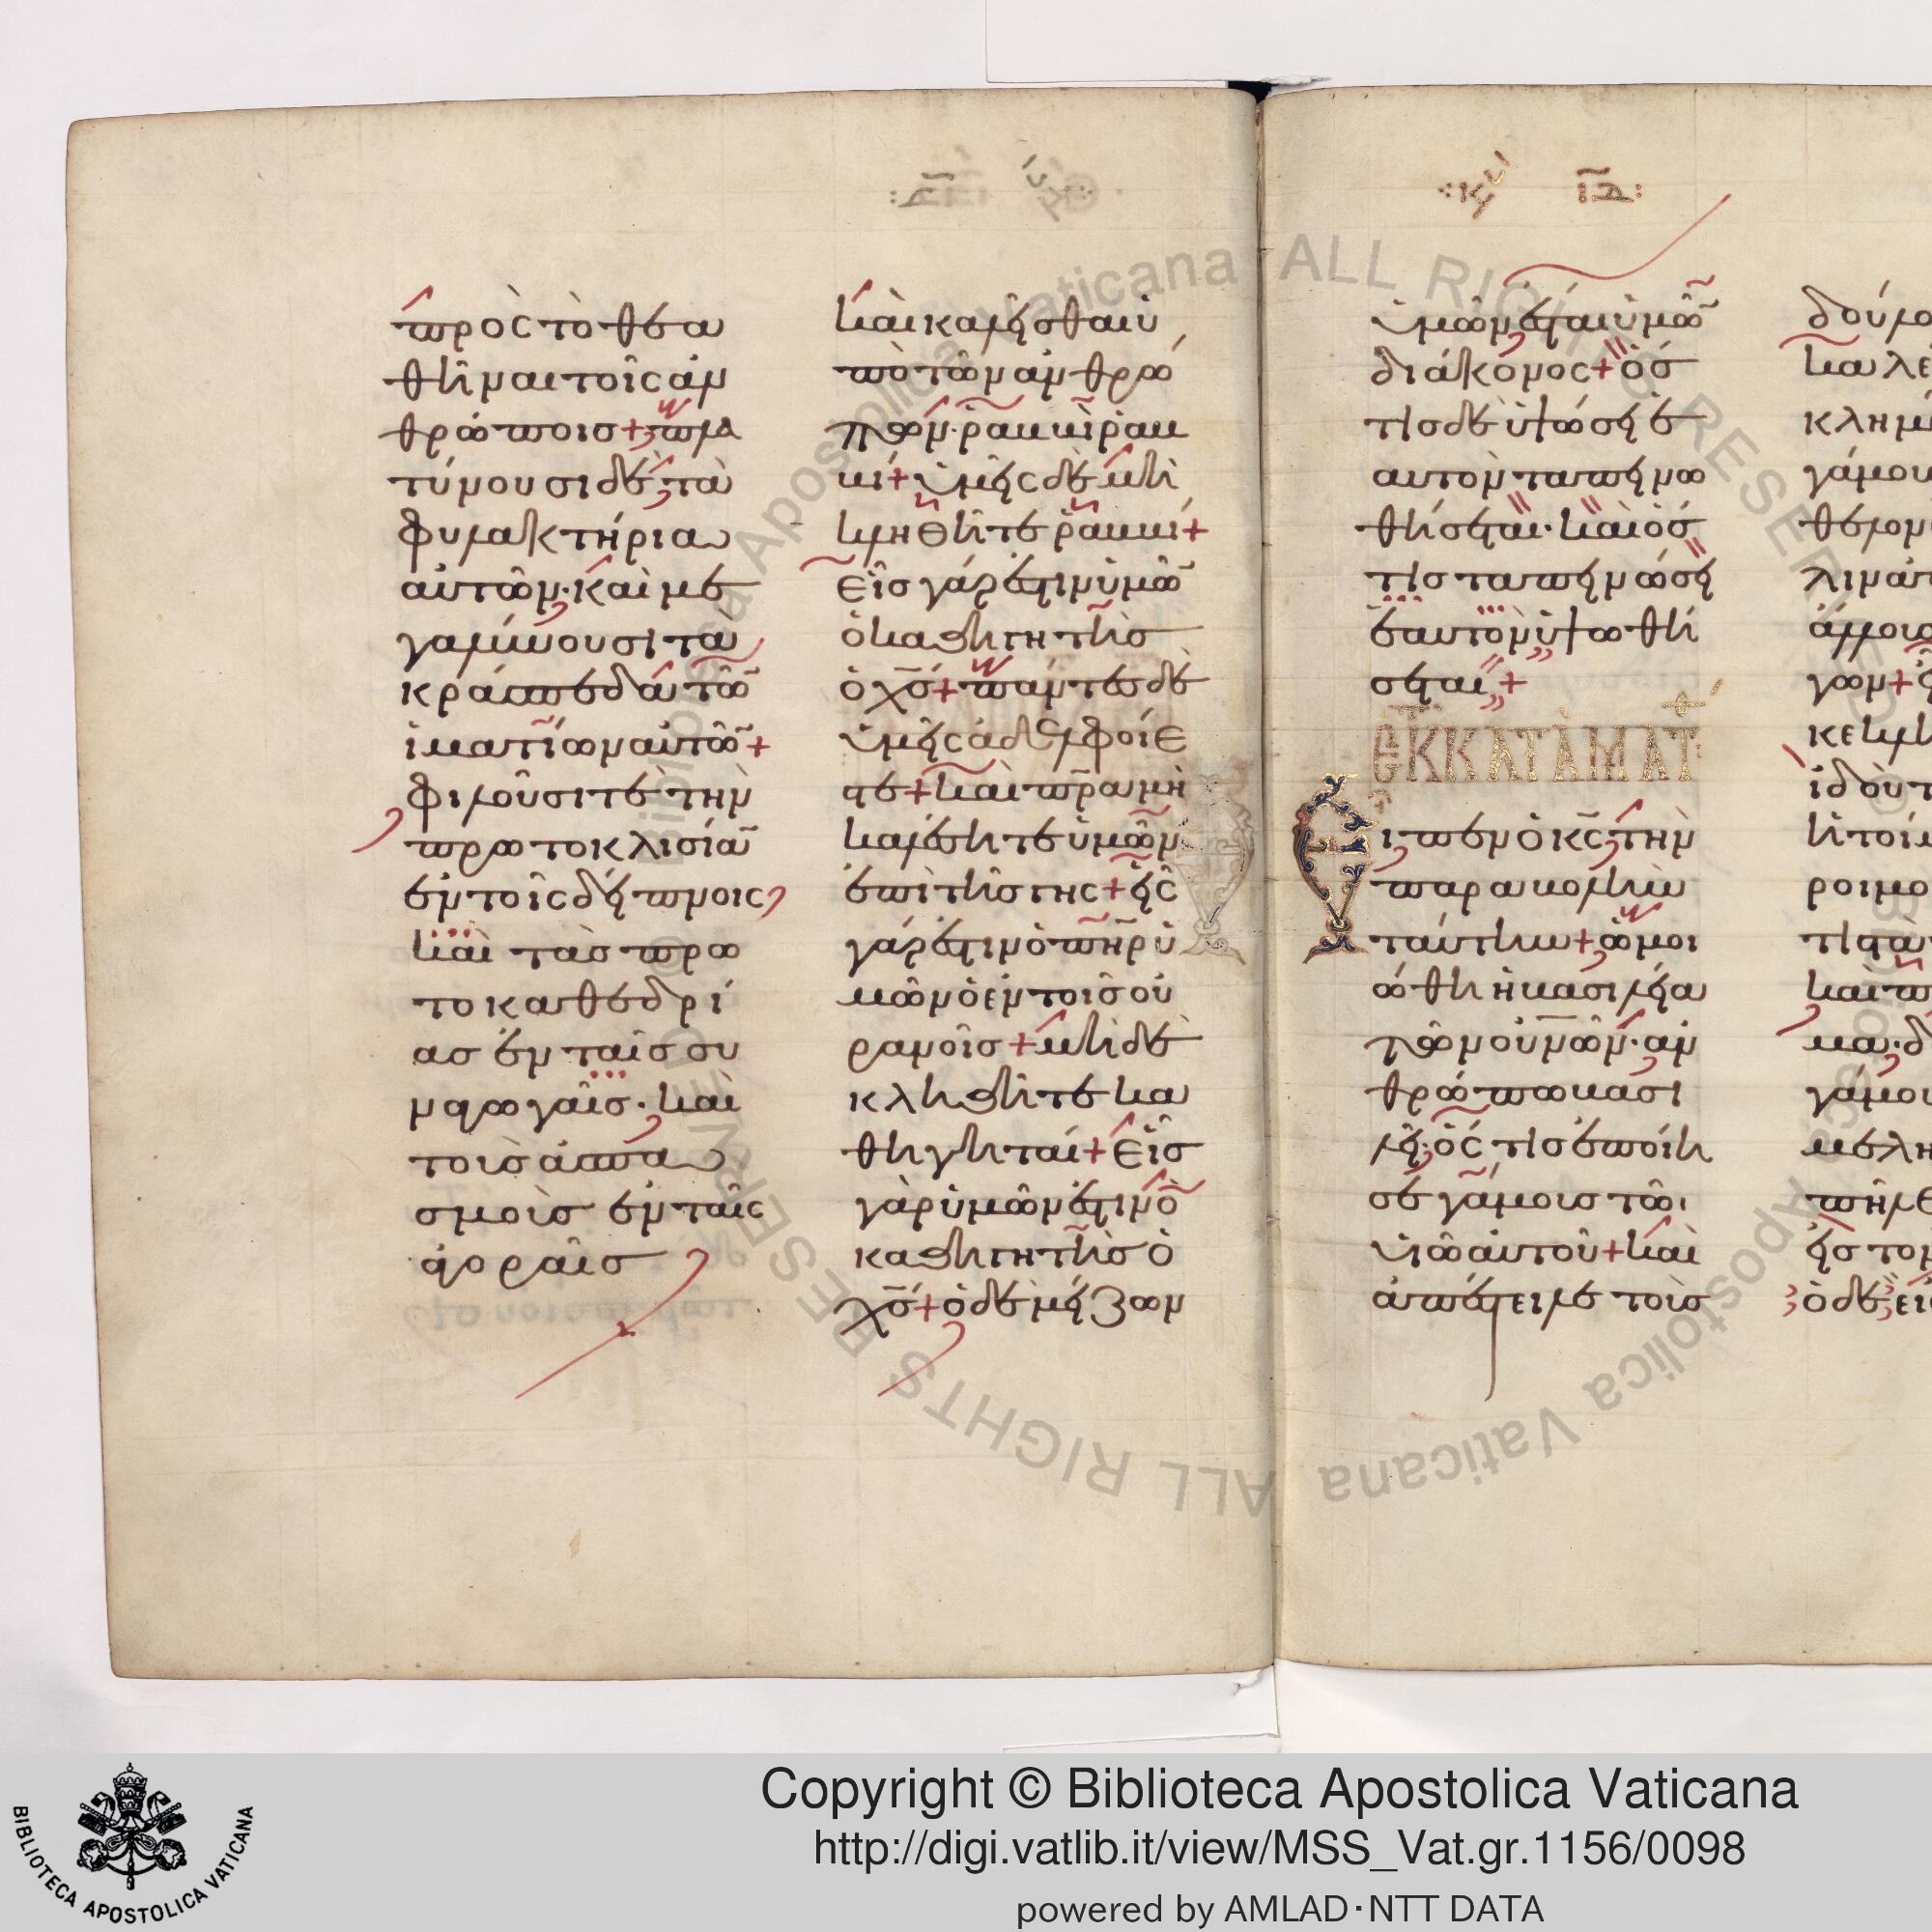 πρὸς τὸ θεα
θῆναι τοῖς ἀν
θρώποισ + πλα
τύνουσι δὲ τὰ
φυλακτήρια
αὐτῶν · καὶ με
γαλύνουσι τὰ
κράσπεδα τῶ̄
ἱματίων αὐτῶ̄ +
φιλοῦσι τὲ τὴν
πρωτοκλισίᾱ
ἐν τοῖς δείπνοις
καὶ τὰσ πρω
τοκαθεδρί
ασ ἐν ταῖσ συ
ναγωγαῖσ · καὶ
τοὺσ ἀσπα
σμοὺσ ἐν ταῖς
ἀγοραῖσ
καὶ καλεῖσθαι ὑ
πὸ τῶν ἀνθρώ
πων · ῥαββὶ ῥαβ
βί + ὑμεῖς δὲ μὴ
κληθῆτε ῥαββί +
εἷσ γάρ ἐστιν ὑμῶ̄
ὁ καθηγητὴσ
ὁ χ̄σ̄ + πάντεσ δὲ
ὑμεῖς ἀδελφοί ἐ
στε + καὶ π̄ρ̄α μὴ
καλέσητε ὑμῶν
ἐπὶ τῆσ γης + εἷς
γάρ ἐστιν ὁ π̄η̄ρ ὑ
μῶν ὁ ἐν τοισ οὐ
ρανοῖσ + μὴ δὲ
κληθῆτε κα
θηγηταί + εἷσ
γὰρ ὑμῶν ἐστιν ὁ
καθηγητὴσ ὁ
χ̄σ̄ + ὁ δὲ μείζων
ῑδ :
ὑμῶν ἔσται ὑμῶ̄
διάκονος + ὅσ
τισ δὲ ὑψώσει ἑ
αυτὸν ταπεινω
θήσεται · καὶ ὅσ
τισ ταπεινώσει
ἑαυτὸν ὑψωθή
σεται +
ΕΚ Κ ΑΤᾺ ΜΑΤ
Εἶπεν ὁ κ̄ς̄ τὴν
παραβολὴν
ταύτην + ὡμοι
ώθη ἡ βασιλεία
τῶν οὐν̄ῶν · ἀν
θρώπω βασι
λεῖ · ὅς τισ ἐποίη
σε γάμουσ τῶι
ὑιῶ αὐτοῦ + καὶ
ἀπέστειλε τοὺσ
Copyright © Biblioteca Apostolica Vaticana
http://digi.vatlib.it/view/MSS_Vat.gr.1156/0098
powered by AMLAD·NTT DATA
BIBLIOTECA APOSTOLICA VATICANA